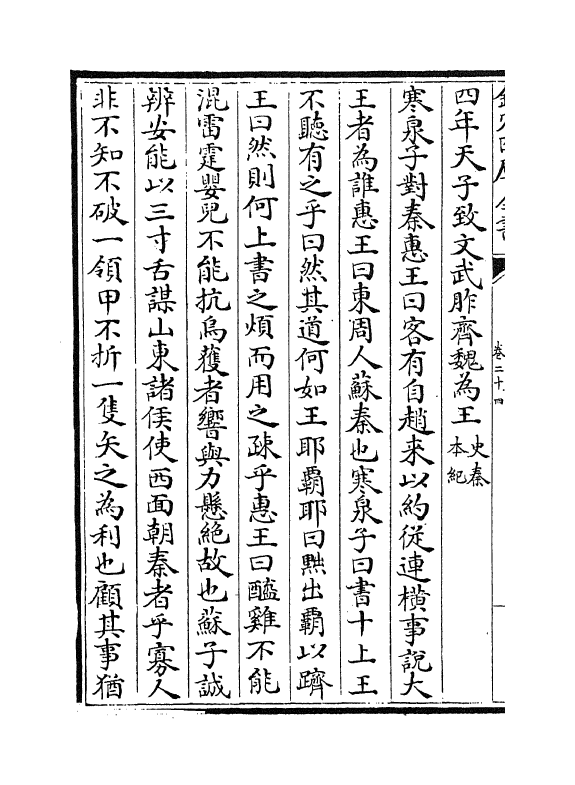 欽定四庫全書
卷二十四
四年天子致文武胙齊魏為王史秦本紀
寒泉子對秦惠王曰客有自趙来以約從連橫事說大
王者為誰惠王曰東周人蘇秦也寒泉子曰書十上王
不聽有之乎曰然其道何如王耶覇耶曰黜出覇以躋
王曰然則何上書之煩而用之疎乎惠王曰醯雞不能
混雷霆嬰兒不能抗烏獲者響與力懸絶故也蘇子誠
辨安能以三寸舌謀山東諸侯使西面朝秦者乎寡人
非不知不破一領甲不折一隻矢之為利也顧其事猶